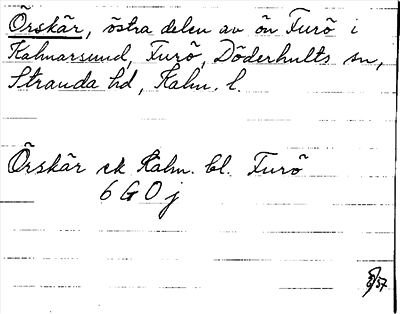 Örskär, östra delen av ön Furö i
Kalmarsund, Furö, Döderhults sn,
Stranda hd, Kalm. l.
Örskär ek Kalm. bl. Furö
6 G 0 j